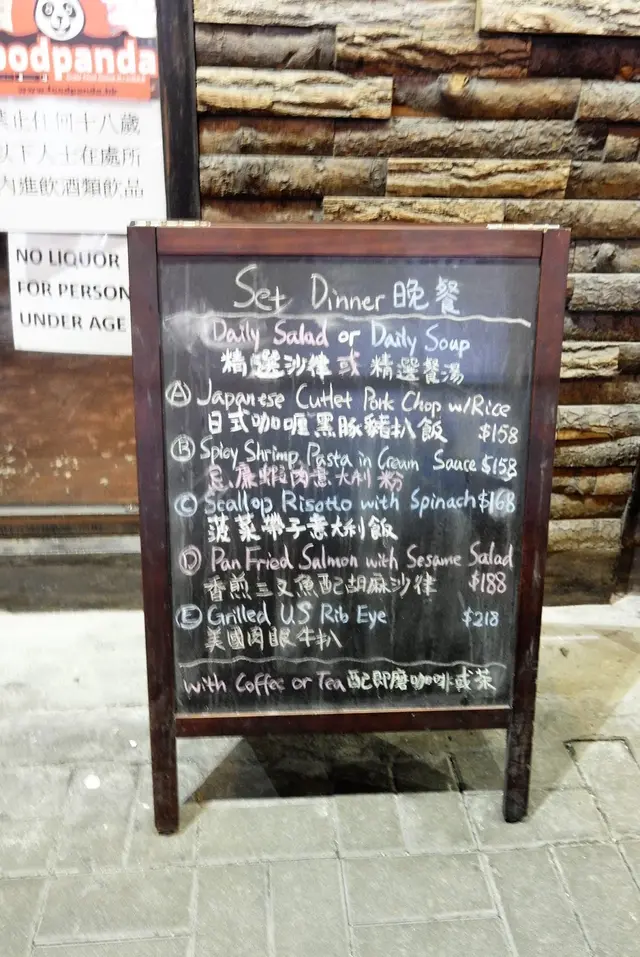 foodpanda
www.foodpanda.hk
禁止任何十八歲
以下人士在處所
內進飲酒類飲品
NO LIQUOR
FOR PERSON
UNDER AGE
Set Dinner 晚餐
Daily Salad or Daily Soup
精選沙律或精選餐湯
A Japanese Cutlet Pork Chop w/Rice
日式咖喱黑豚豬扒飯 $158
B Spicy Shrimp Pasta in Cream Sauce $158
忌廉蝦肉意大利粉
C Scallop Risotto with Spinach $168
菠菜帶子意大利飯
D Pan Fried Salmon with Sesame Salad
香煎三文魚配胡麻沙律 $188
E Grilled US Rib Eye $218
美國肉眼牛扒
with Coffee or Tea 配即磨咖啡或茶